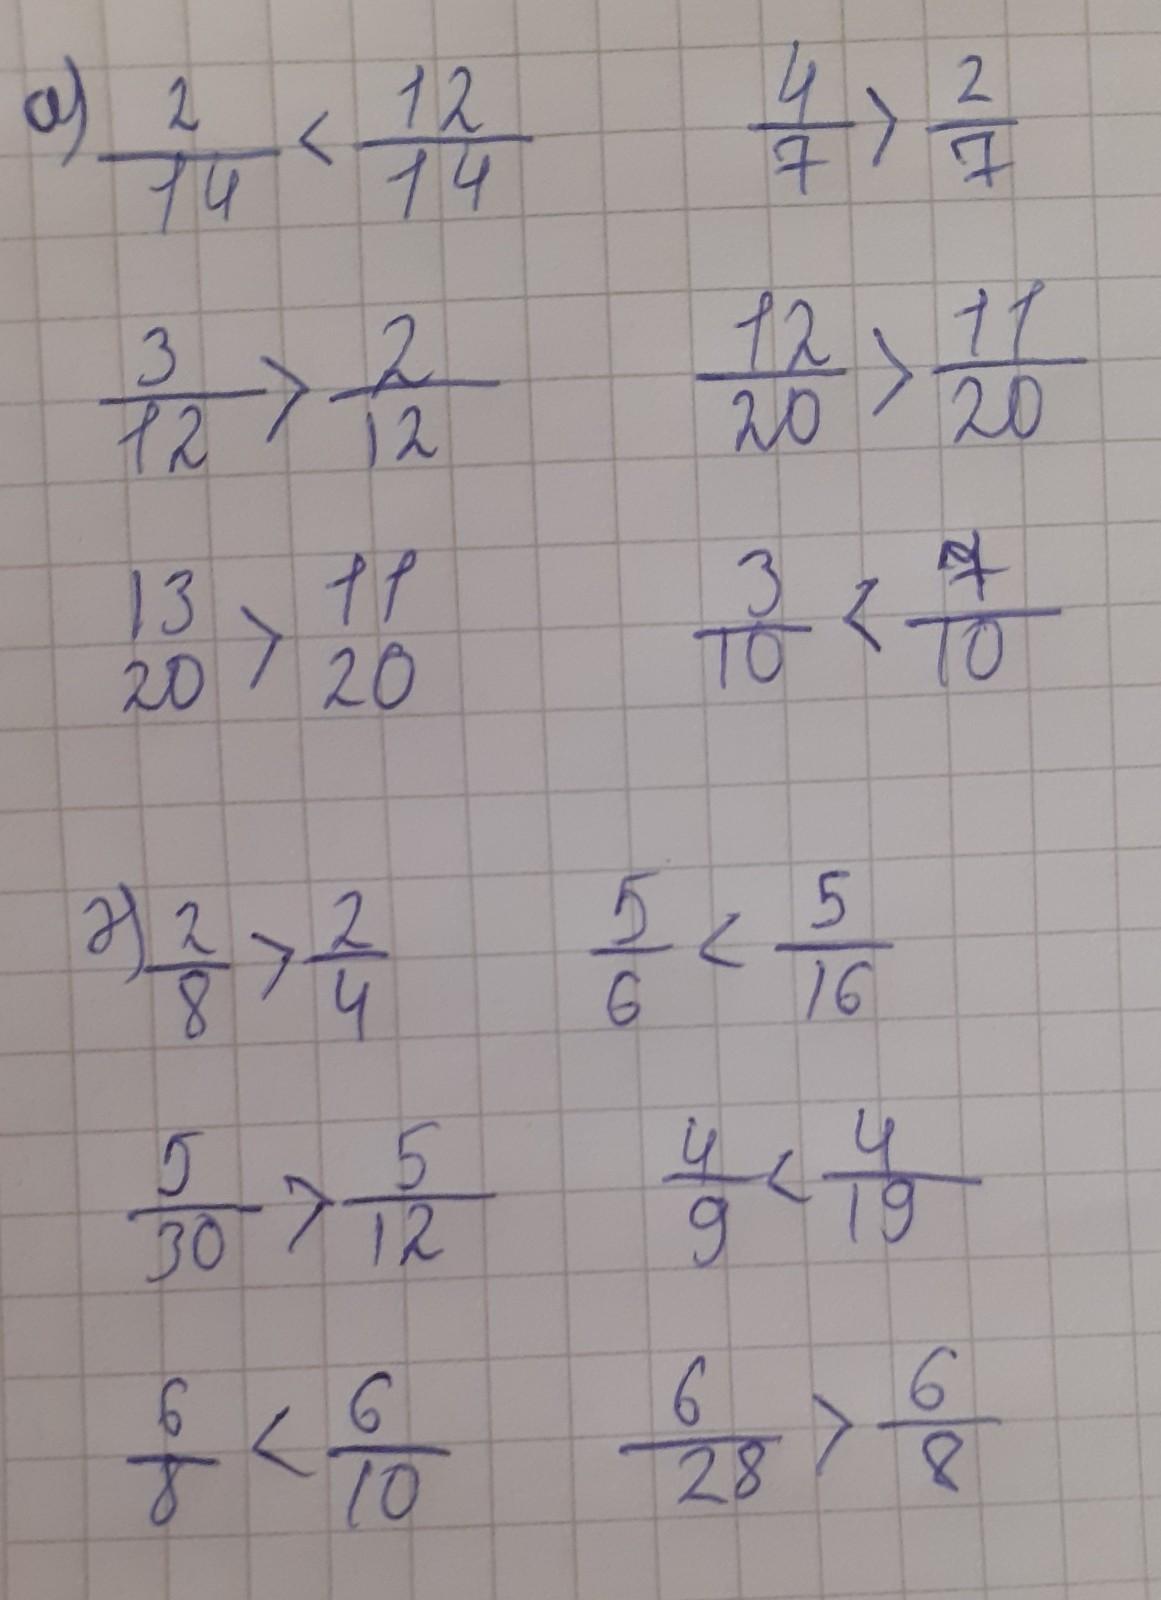 а) 2/14 < 12/14 4/7 > 2/7
3/12 > 2/12 12/20 > 11/20
13/20 > 11/20 3/10 < 7/10
д) 2/8 > 2/4 5/6 < 5/16
5/30 > 5/12 4/9 < 4/19
6/8 < 6/10 6/28 > 6/8